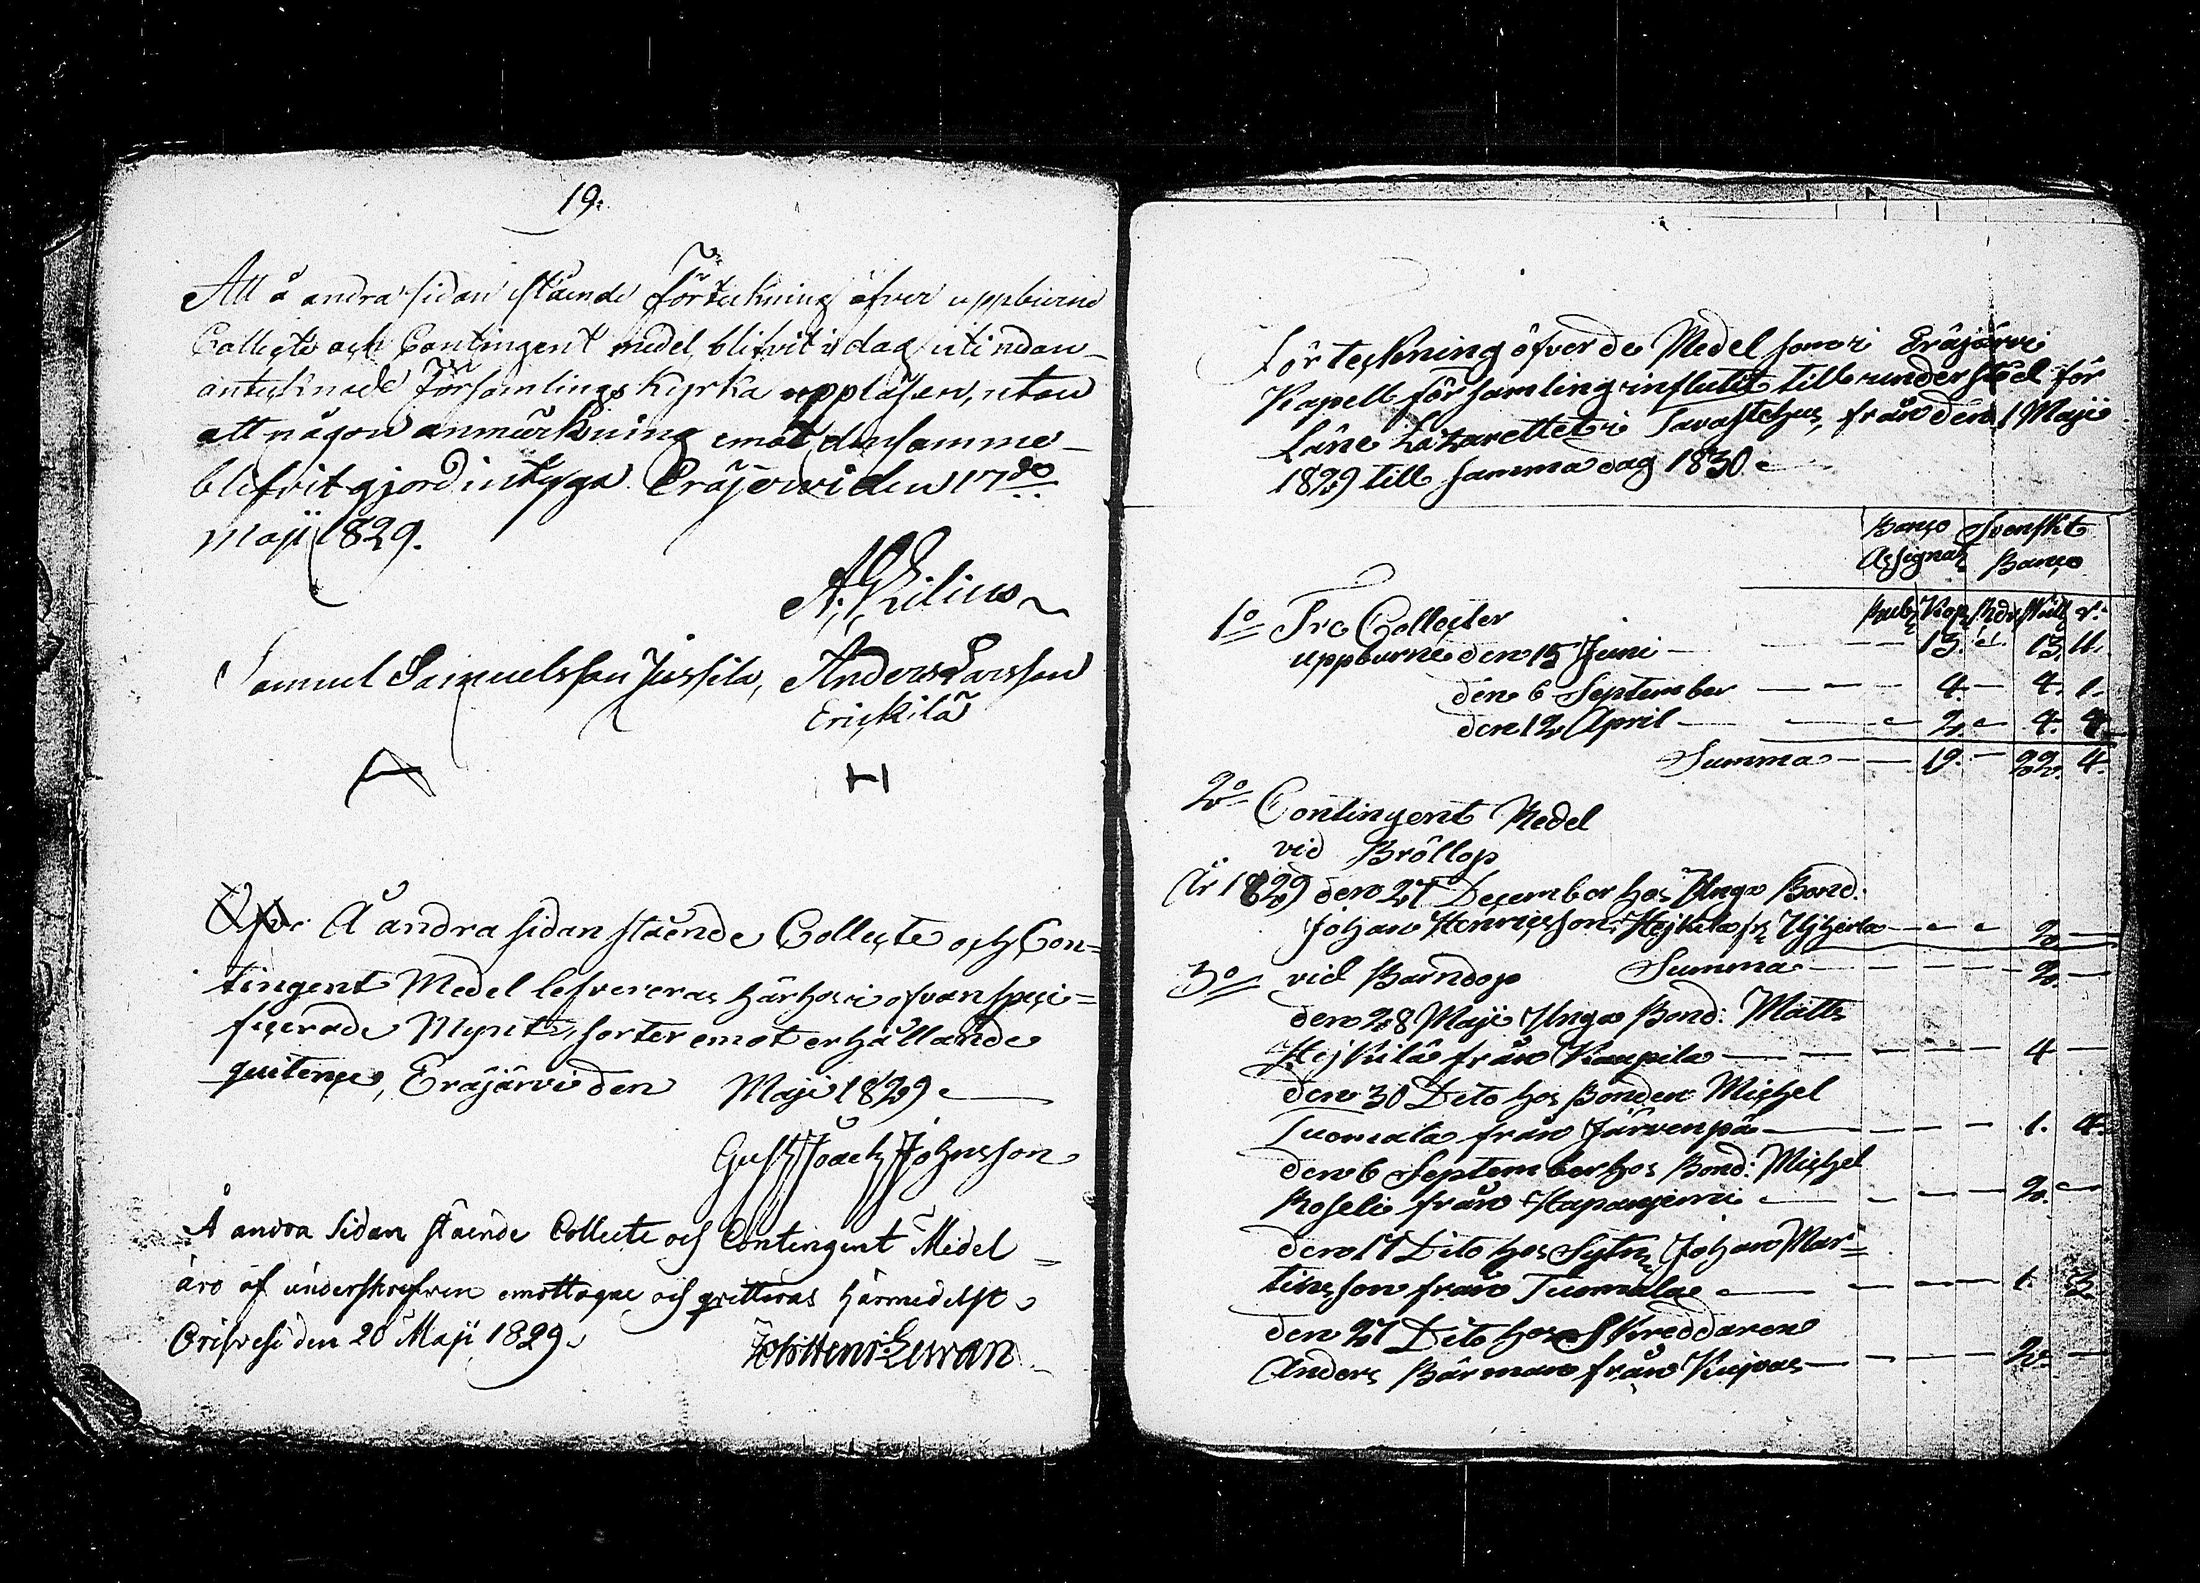 19.
Att å andra sidan stående förteckning öfver uppburne
Collecte och Contingent medel, blifvit i dag uti nedan-
antecknade Församlings Kyrka uppläsen, utan
att någon anmärkning emot densamma
blifvit gjord intyga Eräjerwi den 17de
Maji 1829.
Samuel Samuelsson Jussila, Anders Larsson
Erickilä
Å andra sidan stående Collecte och Con=
tingent Medel lefvereras härhos i ofvan speci=
ficerade Mynt sorter emot erhållande
quitence, Eräjärvi den Maji 1829
Gust Joach Johnsson
Å andra sidan stående Collecte och Contingent Medel
äro af underskrefven emottagne och qvitteras härmedelst
Orihvesi den 20 Maji 1829.
Förteckning öfver de Medel som i Eräjärvi
Kapell församling influtit till understöd för
Läne Lazarettet i Tavastehus, från den 1 Maji
1829 till samma dag 1830.
Banco Svenskt
Assignat. Banco
Rub. Kop. Rdr Skill. r.
1o Tre Collecter
uppburne den 15 Juni 13. 13. 11.
den 6 September 4. 4. 1.
den 12 April 2. 4. 4.
Summa 19. 22. 4.
2o Contingent Medel
vid Bröllop
År 1829 den 27 December hos Unga Bond.
Johan Henricsson Hejkila fr. 2
Summa 2.
3o vid Barndop
den 28 Maji Unga Bond: Matts
Hejkilä från Kaupila 4
den 30 Dito hos Bonden Michel
Tuomala från Järvenpä 1. 4.
den 6 September hos Bond: Michel
Roseli från 2.
den 17 Dito hos Sytn: Johan Mar=
tinsson från Tuomala 1. 2
den 27 Dito hos Skreddaren
Anders Bärman från Kujvas 2.